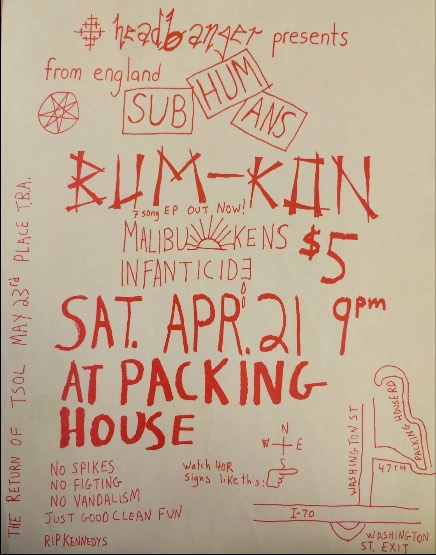 headbanger presents
from england
SUB HUM ANS
BUM-KON
7 song EP OUT NOW!
MALIBU KENS
$5
INFANTICIDE
SAT. APR. 21 9pm
AT PACKING
HOUSE
NO SPIKES
NO FIGTING
NO VANDALISM
JUST GOOD CLEAN FUN
RIP KENNEDYS
Watch 4OR
Signs like this:
N
W E
S
WASHINGTON ST
PACKING HOUSE RD
47TH
I-70
WASHINGTON
ST. EXIT
THE RETURN OF TSOL MAY 23rd PLACE T.B.A.